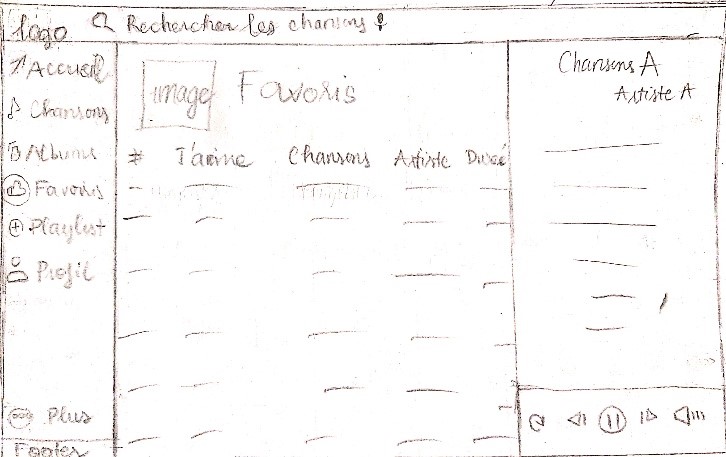 logo Rechercher les chansons
Accueil
Chansons
Albums
Favoris
Playlist
Profil
Plus
Footer
image Favoris
# J'aime Chansons Artiste Durée
Chansons A
Artiste A